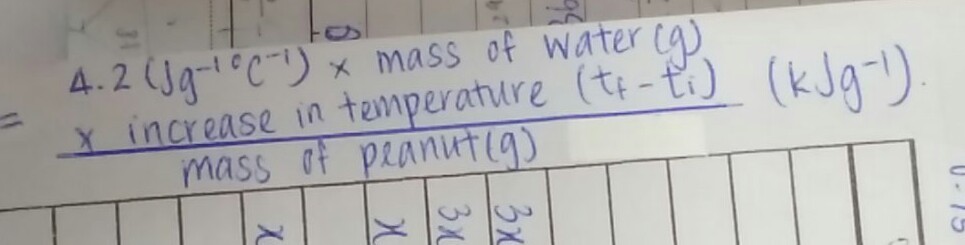 4.2 (Jg⁻¹°C⁻¹) x mass of water (g)
= x increase in temperature (tf - ti) (kJg⁻¹).
mass of peanut (g)
x x 3x 3x
0.75